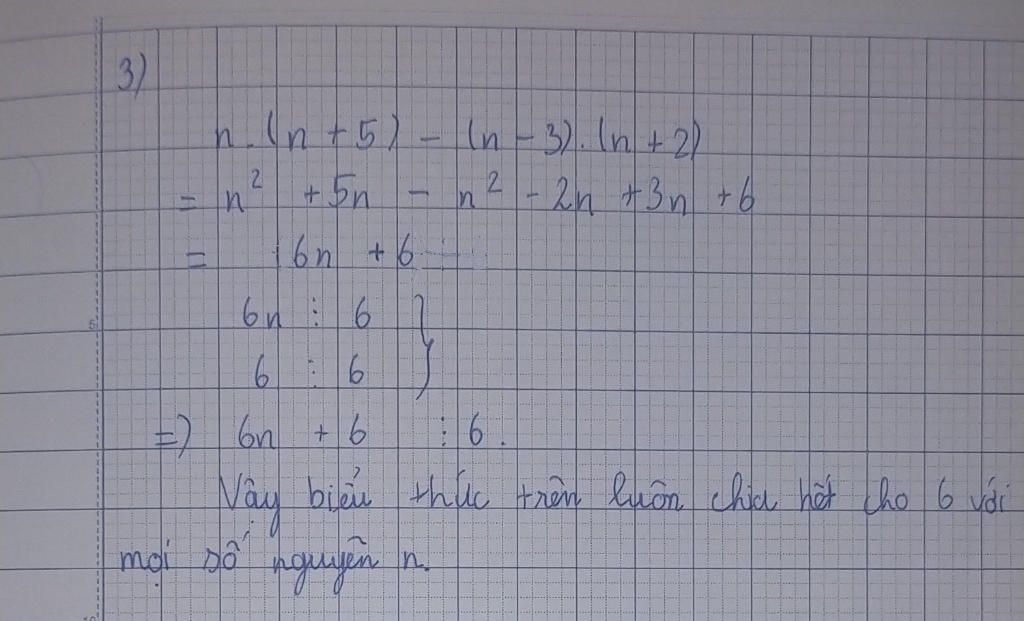 3)
n.(n + 5) - (n - 3).(n + 2)
= n² + 5n - n² - 2n + 3n + 6
= 6n + 6
6n ⋮ 6 }
6 ⋮ 6
=> 6n + 6 ⋮ 6.
Vậy biểu thức trên luôn chia hết cho 6 với
mọi số nguyên n.